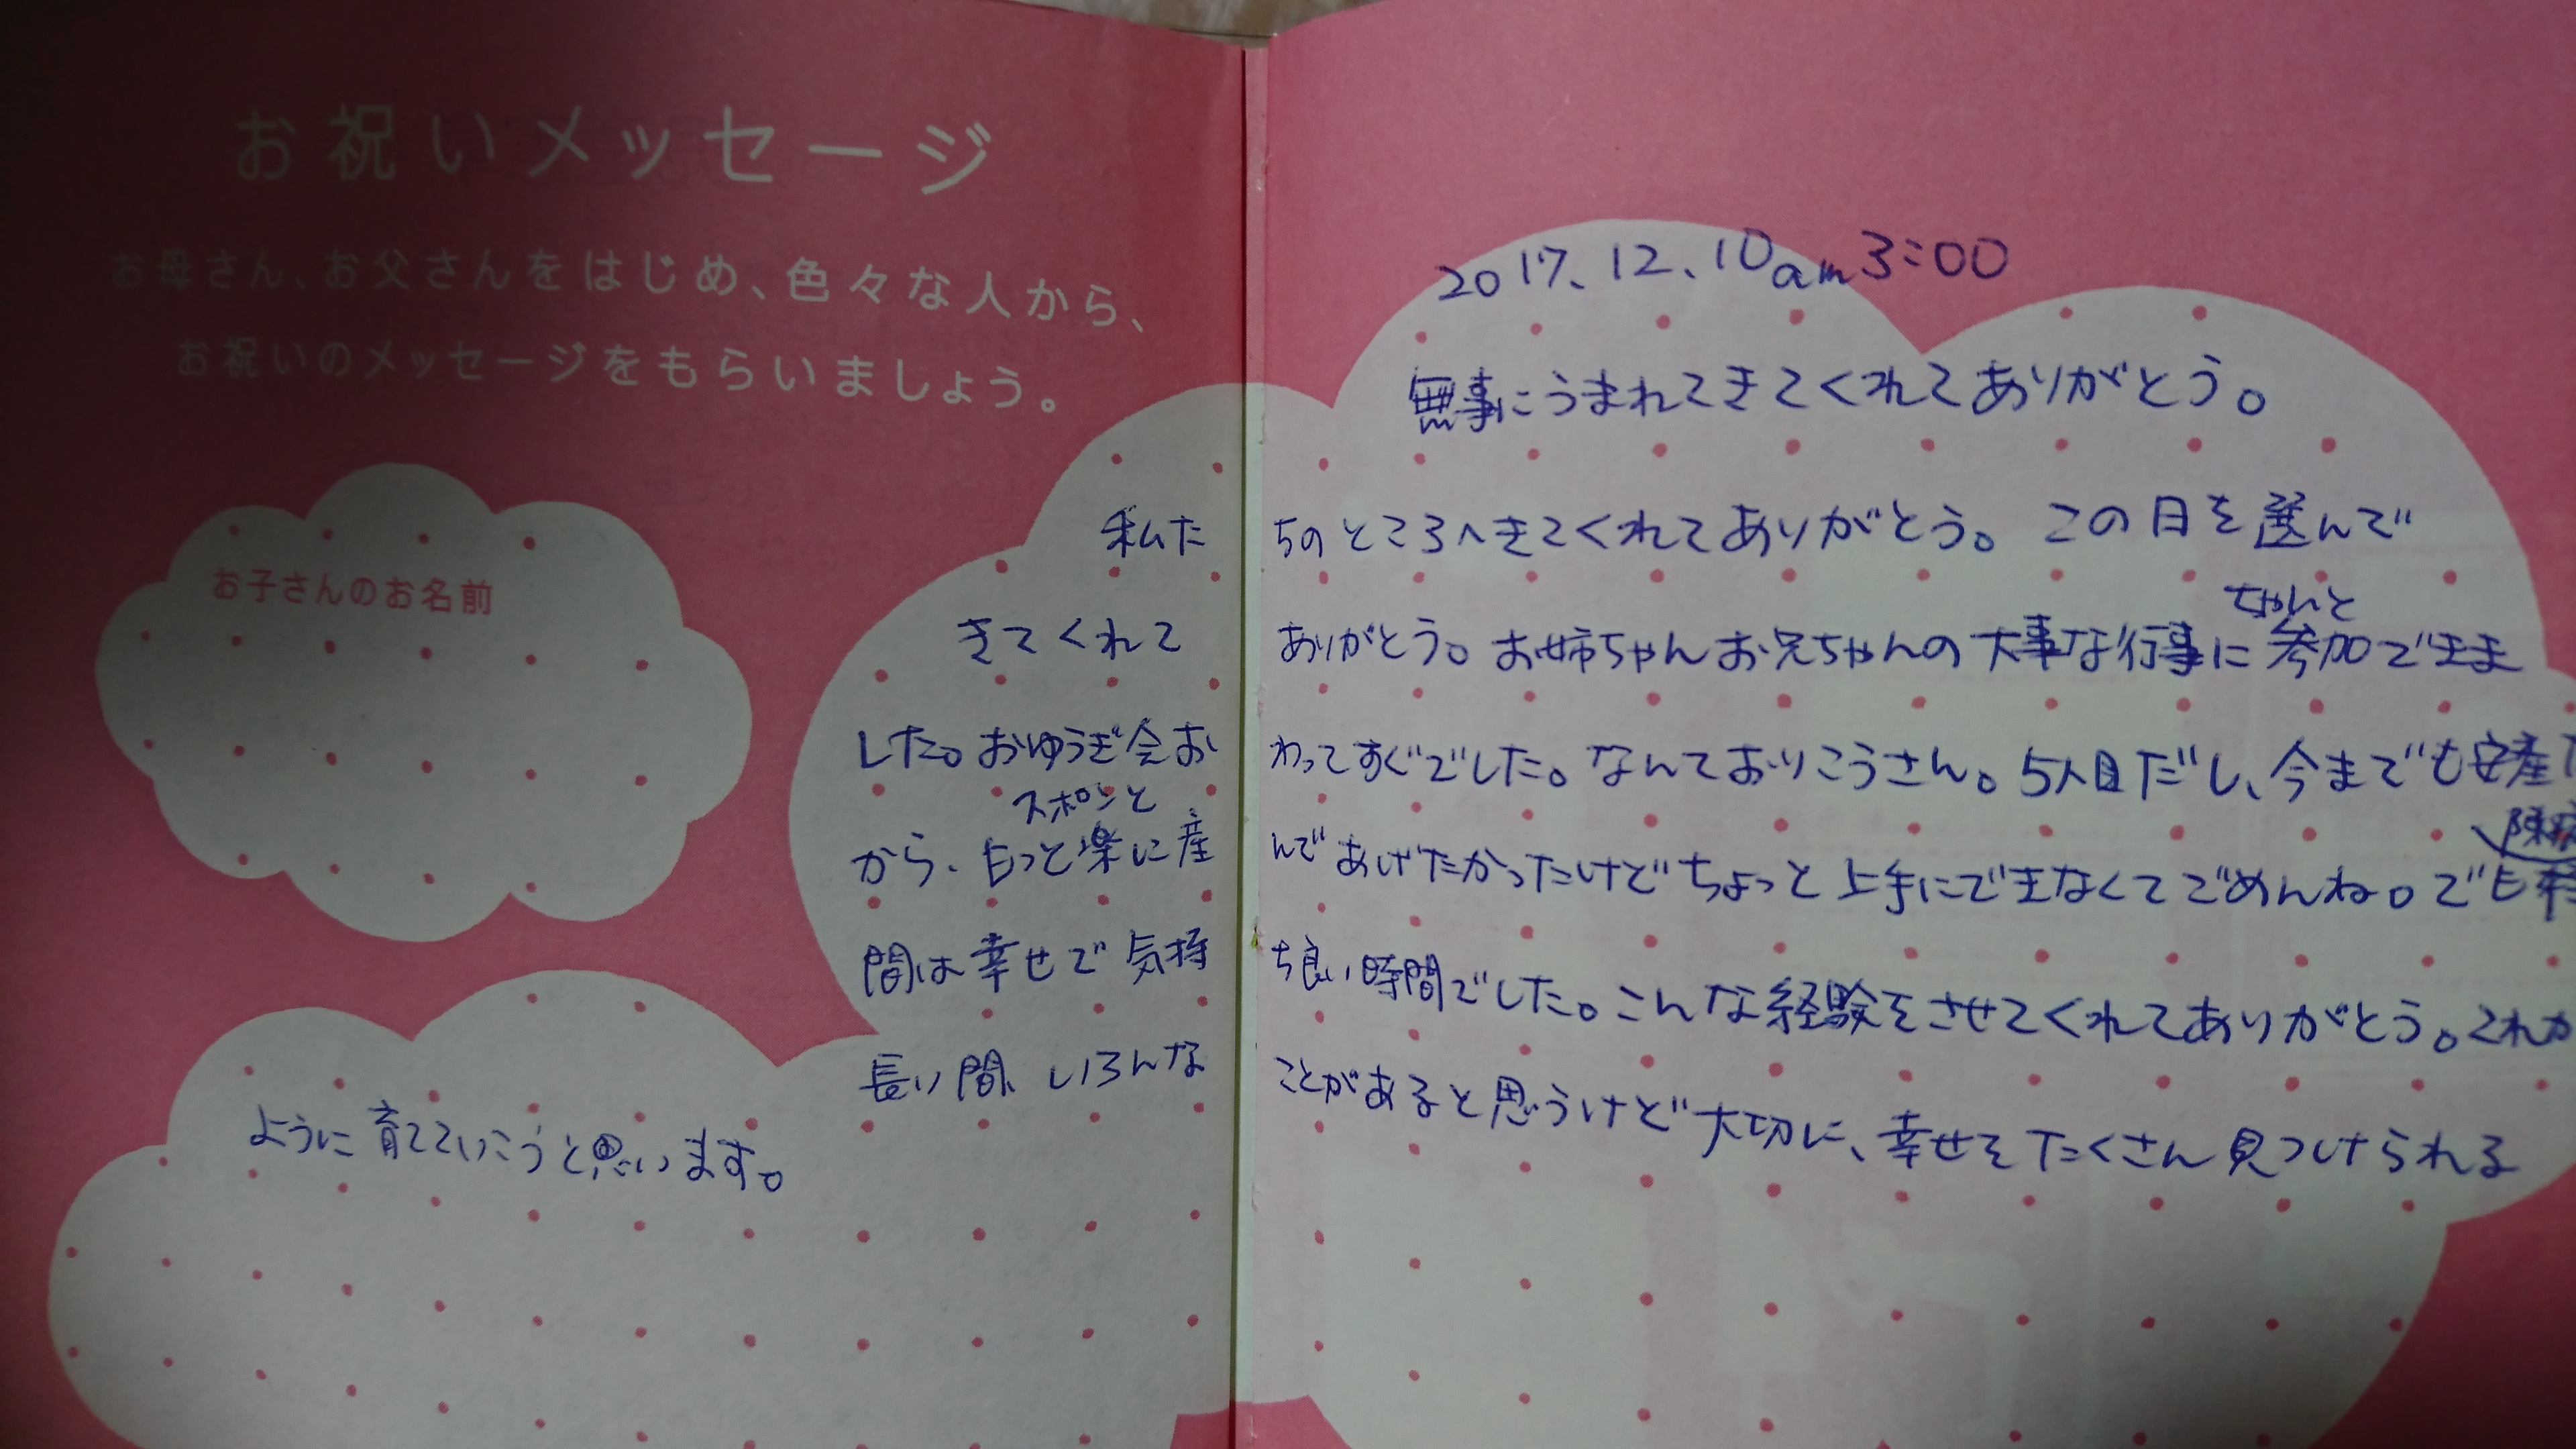 お祝いメッセージ
お母さん、お父さんをはじめ、色々な人から、
お祝いのメッセージをもらいましょう。
お子さんのお名前
2017.12.10am3:00
無事にうまれてきてくれてありがとう。
私たちのところへきてくれてありがとう。この日を選んで
ちゃんと
きてくれてありがとう。お姉ちゃんお兄ちゃんの大事な行事に参加できま
した。おゆうぎ会おわってすぐでした。なんておりこうさん。5人目だし、今までも安産
スポンと
から、もっと楽に産んであげたかったけどちょっと上手にできなくてごめんね。でも
間は幸せで気持ち良い時間でした。こんな経験をさせてくれてありがとう。これか
長い間、いろんなことがあると思うけど大切に、幸せをたくさん見つけられる
ように育てていこうと思います。